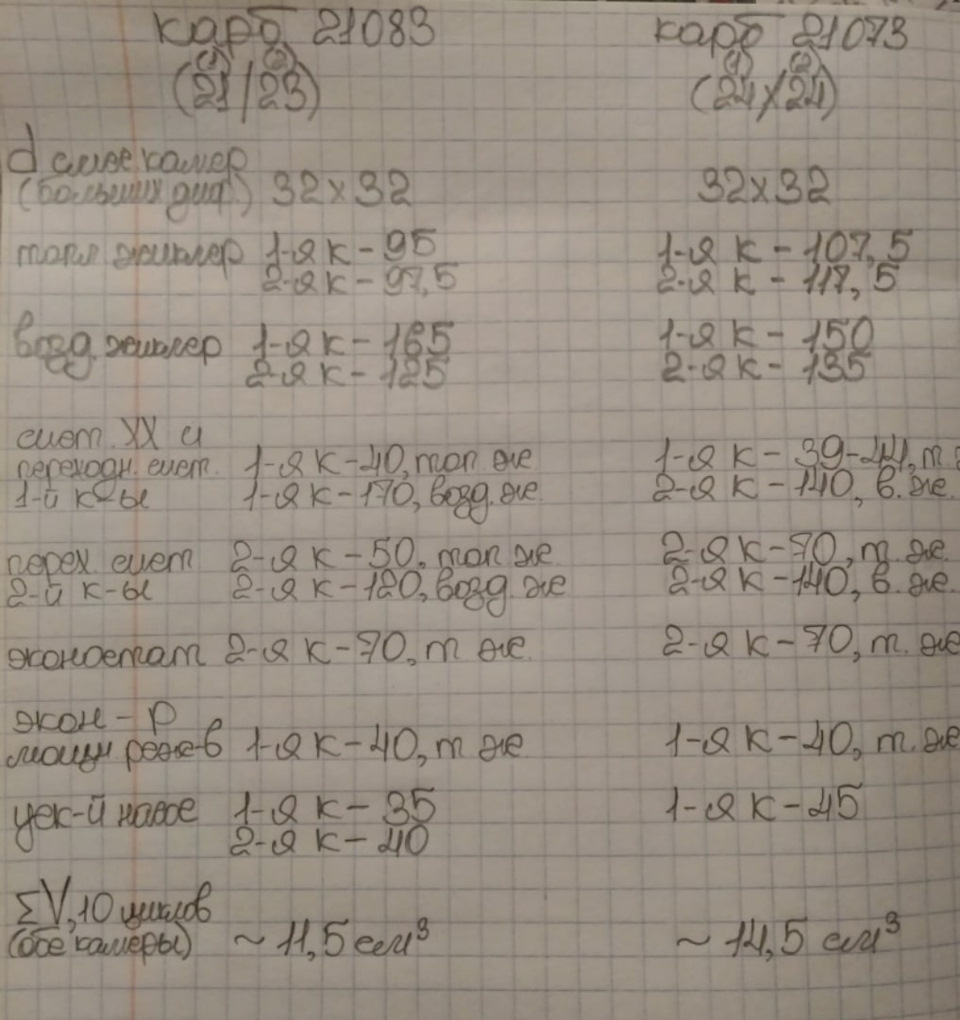 карб 21083 карб 21073
(1) (2) (1) (2)
(21/23) (24x24)
d смес камер
(больших диф.) 32x32 32x32
топл жиклер 1-я к-95 1-я к-107,5
2-я к-97,5 2-я к-117,5
возд. жиклер 1-я к-165 1-я к-150
2-я к-125 2-я к-135
сист. ХХ и
переходн. сист. 1-я к-40, топ же 1-я к-39-44, т.
1-й к-ы 1-я к-170, возд. же. 2-я к-140, в. же.
перех сист 2-я к-50, топ же 2-я к-70, т. же.
2-й к-ы 2-я к-120, возд же 2-я к-140, в. же.
эконостат 2-я к-70, т же. 2-я к-70, т. же
экон-р
мощн реже-в 1-я к-40, т же 1-я к-40, т. же
уск-й насос 1-я к-35 1-я к-45
2-я к-40
ΣV,10 циклов
(обе камеры) ~11,5 см³ ~14,5 см³